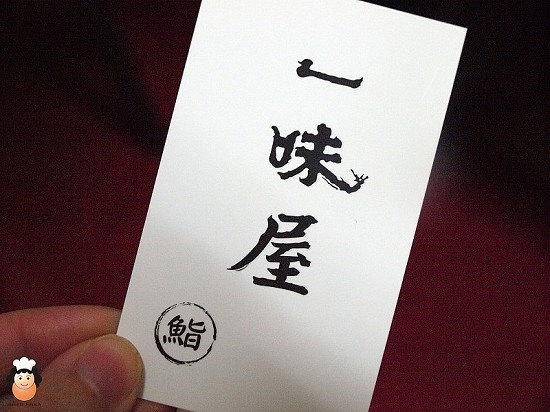 一味屋
鮨